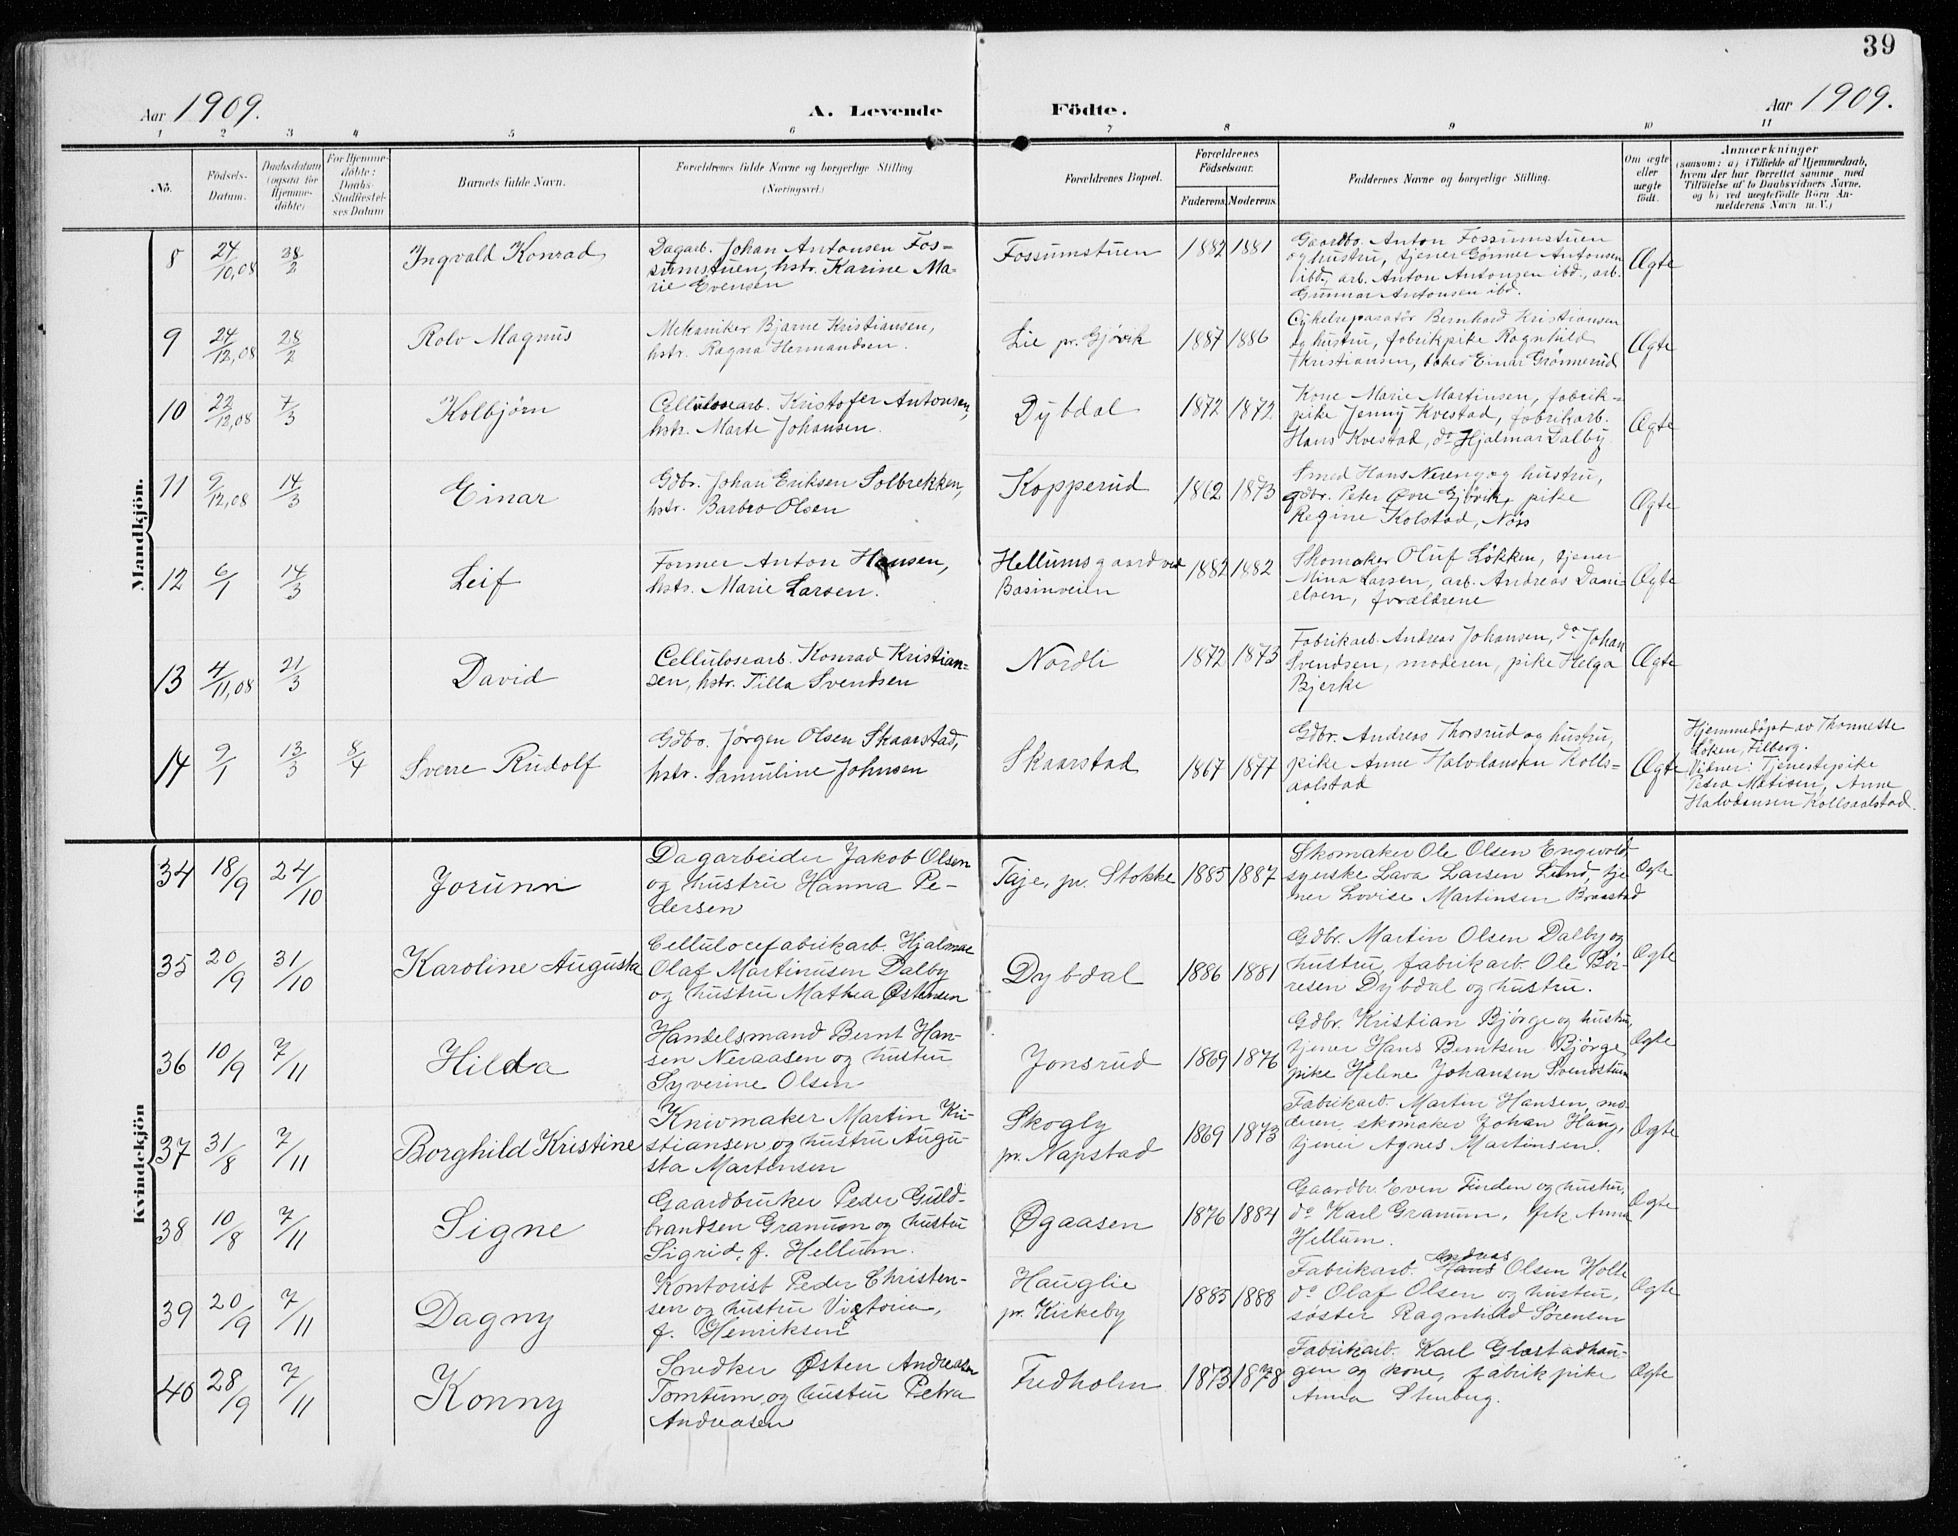 39
Aar 1909. A. Levende Födte. Aar 1909.
1 2 3 4 5 6 7 8 9 10 11
No. Födsels-Datum. Daabsdatum (ogsaa for Hjemme-döbte) For Hjemme-döbte: Daabs-Stadfæstel-ses Datum Barnets fulde Navn. Forældrenes fulde Navne og borgerlige Stilling (Næringsvei.) Forældrenes Bopæl. Forældrenes Fødselsaar. Faderens. Moderens. Faddernes Navne og borgerlige Stilling. Om ægte eller uægte födt. Anmærkninger (saasom: a) i Tilfælde af Hjemmedaab, hvem der har forrettet samme med Tilföielse af to Daabsvidners Navne, og b) ved uægtefödte Börn An-melderens Navn m. V.)
Mandkjön.
8 24/10,08 28/2 Ingvald Konrad Dagarb. Johan Antonsen Fos-
sumstuen, hstr. Karine Ma-
rie Evensen
Fossumstuen 1882 1881 Gaardbr. Anton Fossumstuen
og hustru, tjener Gønner Antonsen
ibd., arb. Anton Antonsen ibd., arb.
Gunnar Antonsen ibd.
Ægte
9 24/12,08 28/2 Rolv Magnus Mekaniker Bjarne Kristiansen,
hstr. Ragna Hermandsen.
Lie pr. Gjøvik 1887 1886 Cykelreparatør Bernhard Kristiansen
og hustru, fabrikpike Ragnhild
Kristiansen, Einar Grønnerud
Ægte
10 22/12,08 7/3 Kolbjørn Cellulosearb. Kristofer Antonsen,
hstr. Marte Johansen.
Dybdal 1872 1872 Kone Marie Martinsen, fabrik-
pike Jenny Kvestad, fabrikarb.
Hans Kvestad, do Hjalmar Dalby.
Ægte
11 9/12,08 14/3 Einar Gdbr. Johan Eriksen Solbrekken,
hstr. Barbro Olsen
Kopperud 1862 1873 Smed Hans Neseng og hustru,
gdbr. Peter Øvre Gjøvik, pike
Regine Kolstad, Nøss
Ægte
12 6/1 14/3 Leif Former Anton Hansen,
hstr. Marie Larsen.
Hellumsgaard ved
Basinveien
1882 1882 Skomaker Oluf Løkken, tjener
Mina Larsen, arb. Andreas Dani-
elsen, forældrene
Ægte
13 4/11,08 21/3 David Cellulosearb. Konrad Kristian-
sen, hstr. Tilla Svendsen
Nordli 1872 1873 Fabrikarb. Andreas Johansen, do Johan
Svendsen, moderen, pike Helga
Bjerke
Ægte
14 9/1 13/3 8/4 Sverre Rudolf Gdbr. Jørgen Olsen Skaarstad,
hstr. Samuline Johnsen
Skaarstad 1867 1877 Gdbr. Andreas Thorsrud og hustru,
pike Anne Halvdansen Kolls-
aalstad
Ægte Hjemmedøpt av Thonnette
Løken, Filberg.
Vidner: Tjenestepike
Petra Matisen, Anne
Halvdansen Kollsaalstad.
Kvindekjön
34 18/9 24/10 Jorunn Dagarbeider Jakob Olsen
og hustru Hanna Pe-
dersen
Taje, pr. Stokke 1885 1887 Skomaker Ole Olsen Engvold,
syerske Lava Larsen Lund, tje
ner Lovise Martinsen Braastad
Ægte
35 20/9 31/10 Karoline Augusta Cellulocefabrikarb. Hjalmar
Olaf Martinusen Dalby
og hustru Mathea Østensen
Dybdal 1886 1881 Gdbr. Martin Olsen Dalby og
hustru, fabrikarb. Ole Bør-
resen Dybdal og hustru.
Ægte
36 10/9 7/11 Hilda Handelsmand Bernt Han-
sen Neraasen og hustru
Syverine Olsen
Jonsrud 1869 1876 Gdbr. Kristian Bjørge og hustru,
tjener Hans Berntsen Bjørge,
pike Helene Johansen Svendstuen
Ægte
37 31/8 7/11 Borghild Kristine Knivmaker Martin Kri-
stiansen og hustru Augu-
sta Martensen
Skogly
pr. Napstad
1869 1873 Fabrikarb. Martin Hansen, mo-
deren, skomaker Johan Haug,
tjener Agnes Martinsen.
Ægte
38 10/8 7/11 Signe Gaardbruker Peder Guld-
brandsen Granum og hustru
Sigrid, f. Hellum.
Øgaasen 1876 1884 Gaardbr. Even Finden og hustru,
do Karl Granum, frk Anna
Hellum.
Ægte
39 20/9 7/11 Dagny Kontorist Peder Christen-
sen og hustru Victoria,
f. Henriksen
Hauglie
pr. Kirkeby
1885 1888 Fabrikarb. Hans Andreas Olsen Holte
do Olaf Olsen og hustru,
søster Ragnhild Sørensen
Ægte
40 28/9 7/11 Konny Snedker Østen Andreasen
Tomtum og hustru Petra
Andreasen
Fredholm 1873 1878 Fabrikarb. Karl Glæstadhau-
gen og kone, fabrikpike
Anna Stenberg.
Ægte